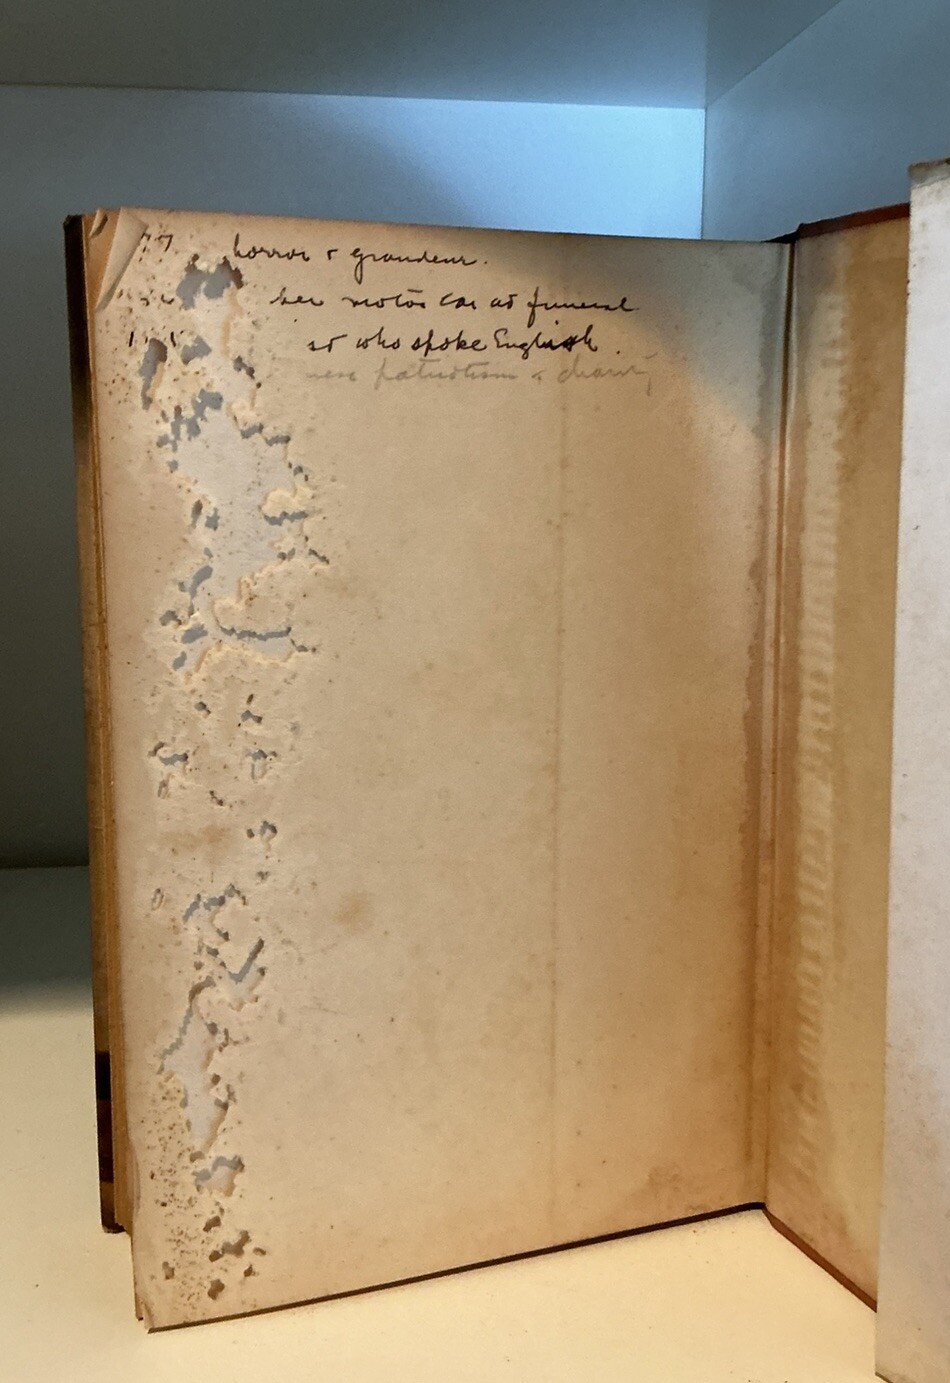 77 horror & grandeur.
her motor car at funeral
st who spoke English.
patriotism &